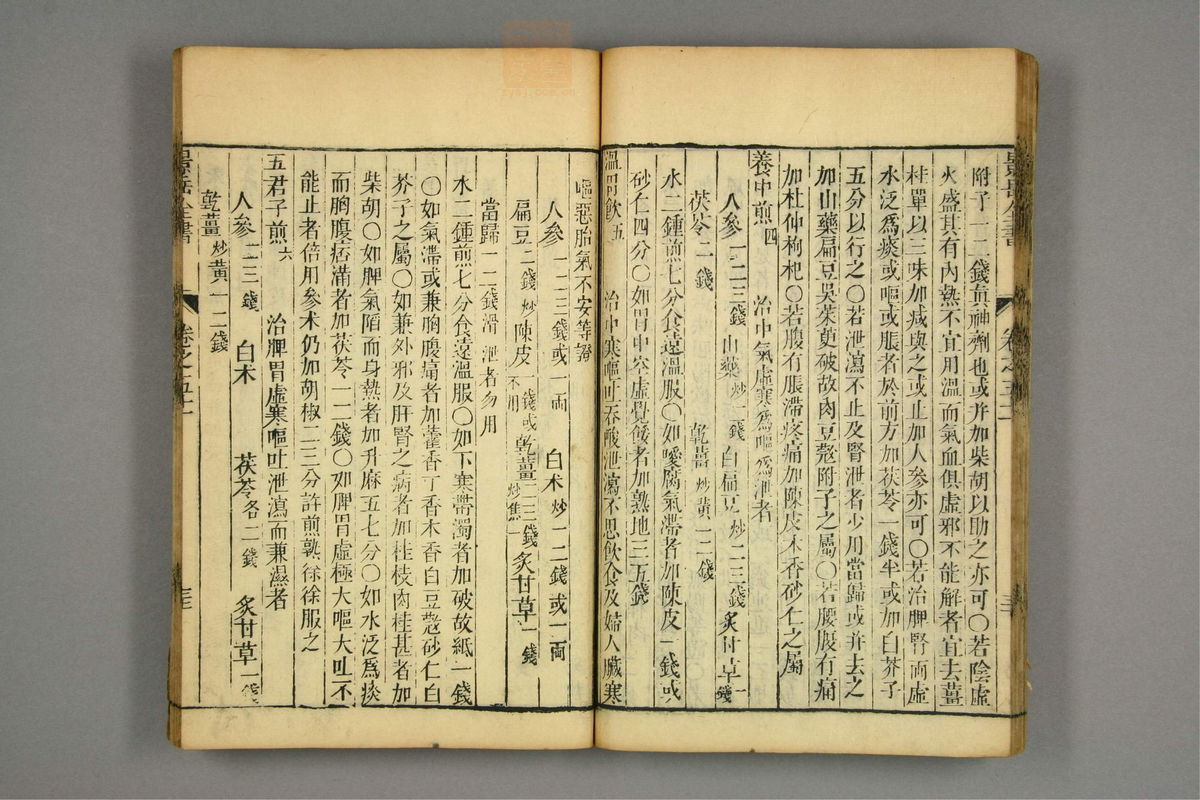 附子一二錢眞神劑也或幷加柴胡以助之亦可〇若陰虛
火盛其有內熱不宜用溫而氣血俱虛邪不能解者宜去薑
桂單以三味加減與之或止加人參亦可〇若治脾腎兩虛
水泛爲痰或嘔或脹者於前方加茯苓一錢半或加白芥子
五分以行之〇若泄瀉不止及腎泄者少用當歸或幷去之
加山藥扁豆吳茱萸破故肉豆蔻附子之屬〇若腰腹有痛
加杜仲枸杞〇若腹有脹滯疼痛加陳皮木香砂仁之屬
養中煎四 治中氣虛寒爲嘔爲泄者
人參一二三錢 山藥炒二錢 白扁豆炒二三錢 炙甘草一錢
茯苓二錢 乾薑炒黃一二錢
水二鍾煎七分食遠溫服〇如噯腐氣滯者加陳皮一錢或
砂仁四分〇如胃中空虛覺餒者加熟地三五錢
溫胃飲五 治中寒嘔吐吞酸泄瀉不思飲食及婦人臟寒
嘔惡胎氣不安等證
人參一二三錢或一兩 白朮炒一二錢或一兩
扁豆二錢炒 陳皮一錢或不用 乾薑二三錢炒焦 炙甘草一錢
當歸一二錢滑泄者勿用
水二鍾煎七分食遠溫服〇如下寒帶濁者加破故紙一錢
〇如氣滯或兼胸腹痛者加藿香丁香木香白豆蔻砂仁白
芥子之屬〇如兼外邪及肝腎之病者加桂枝肉桂甚者加
柴胡〇如脾氣陷而身熱者加升麻五七分〇如水泛爲痰
而胸腹痞滿者加茯苓一二錢〇如脾胃虛極大嘔大吐不
能止者倍用參朮仍加胡椒二三分許煎熟徐徐服之
五君子煎六 治脾胃虛寒嘔吐泄瀉而兼濕者
人參二三錢 白朮 茯苓各二錢 炙甘草一錢
乾薑炒黃一二錢
景岳全書 卷之五十一